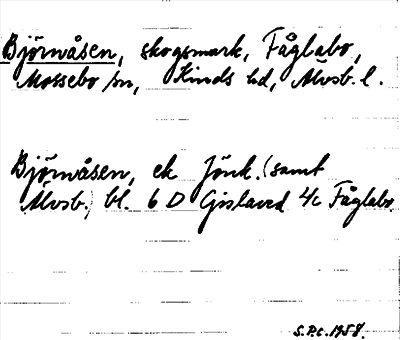 Björnåsen, skogsmark, Fåglabo,
Mossebo sn, Kinds hd, Älvsb. l.
Björnåsen, ek Jönk. (samt
Älvsb.) bl. 6 D Gislaved 4c Fåglabo.
S.P.C. 1958.